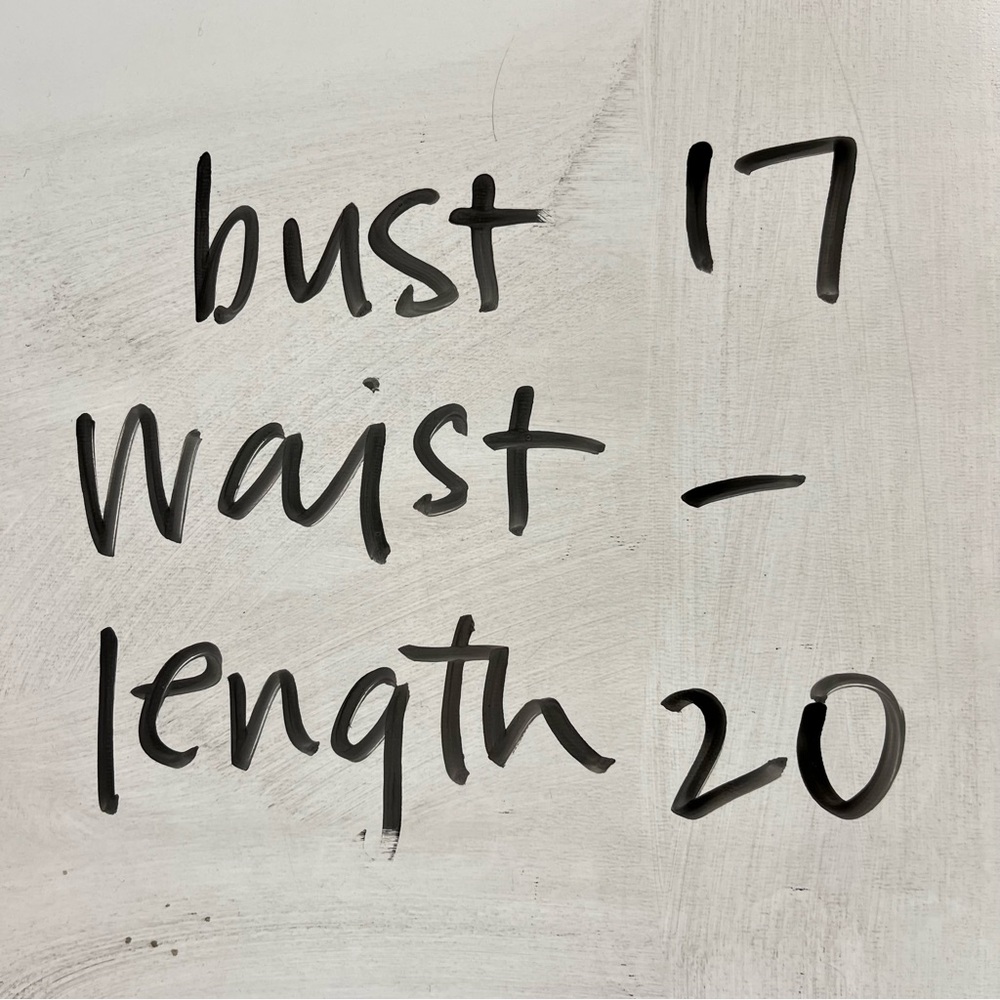 bust 17
waist –
length 20